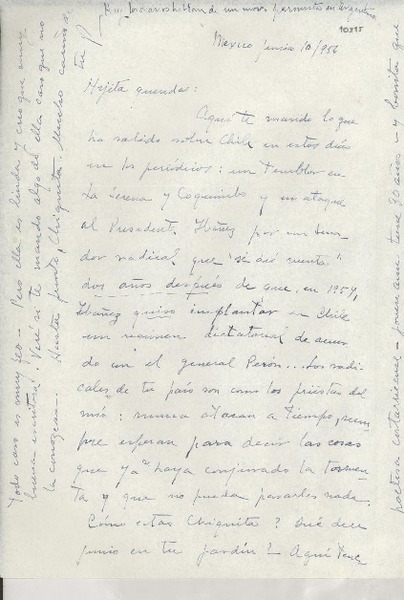 10315
Mexico junio 10/956
Hijita querida:
Aquí te mando lo que
ha salido sobre Chile en estos días
en los periódicos: un temblor en
La Serena y Coquimbo y un ataque
al President. Ibáñez por un sena-
dor radical que "se dió cuenta"
dos años después de que, en 1954,
Ibáñez quiso implantar en Chile
un régimen dictatorial de acuer-
do con el general Perón... Los radi-
cales de tu país son como los priistas del
mío: nunca atacan a tiempo, siem-
pre esperan para decir las cosas
que ya haya conjurado la tormen-
ta y que no pueda pasarles nada.
Cómo estás Chiquita? Qué dice
junio en tu jardín? Aquí
poetisa costarricense - joven aun: tiene 30 años - y bonita que
todo caso es muy feo - Pero ella es linda y creo que muy
buena escritora. Veré si te mando algo de ella para que
la conozcas. Hasta pronto, Chiquita. Mucho cariño de